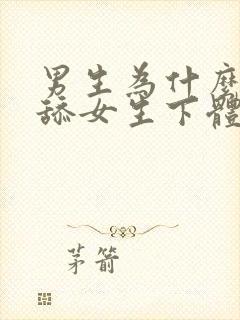 男生為什麼
舔女生下體
茅箭